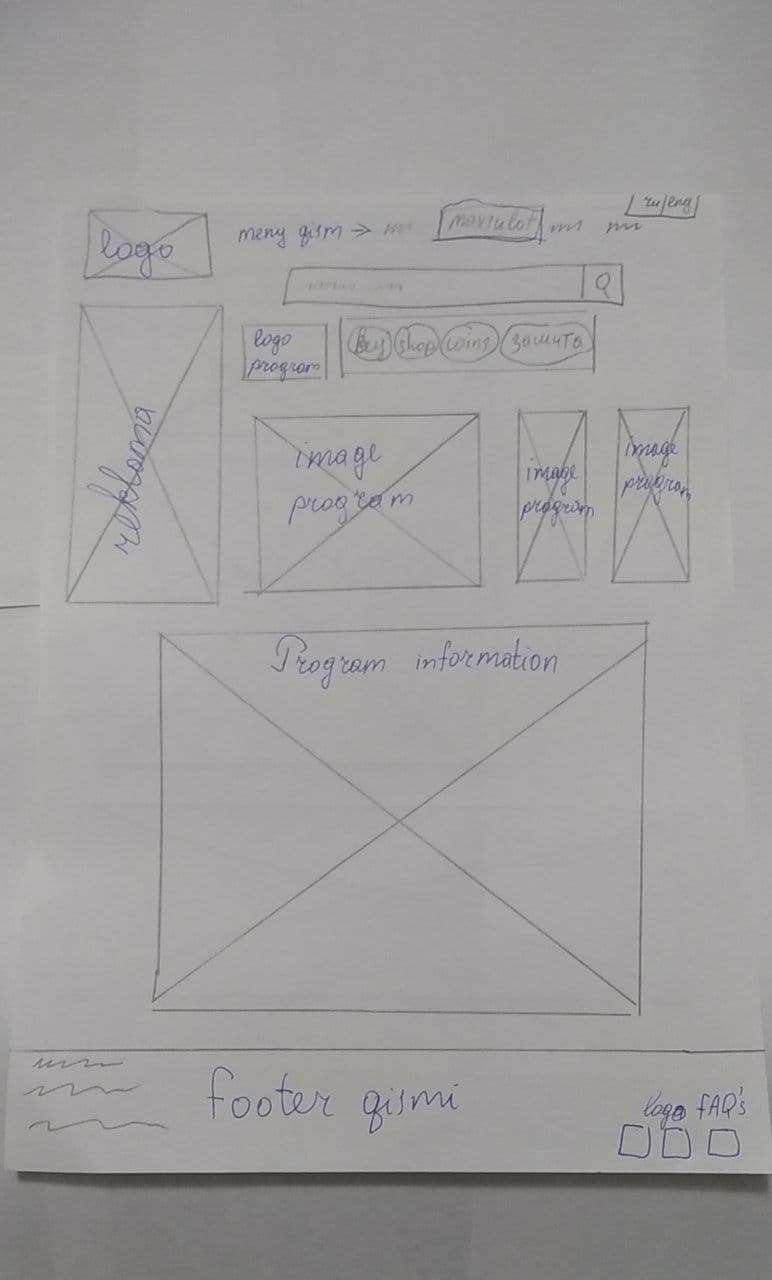 logo
meny qism →
maxsulot
ru/eng
logo
program
Buy
shop
coins
защита
reklama
image
program
image
program
image
program
Program information
footer qismi
logo FAQ's